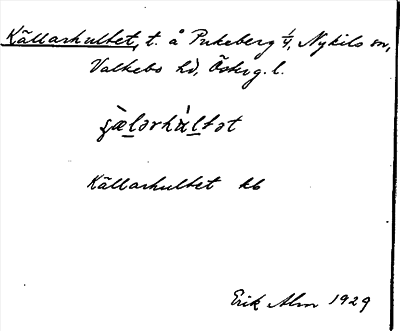 Källarhultet, t. å Pukeberg 1/4, Nykils sn,
Valkebo hd, Österg. l.
Källarhultet kb
Erik Alm 1929